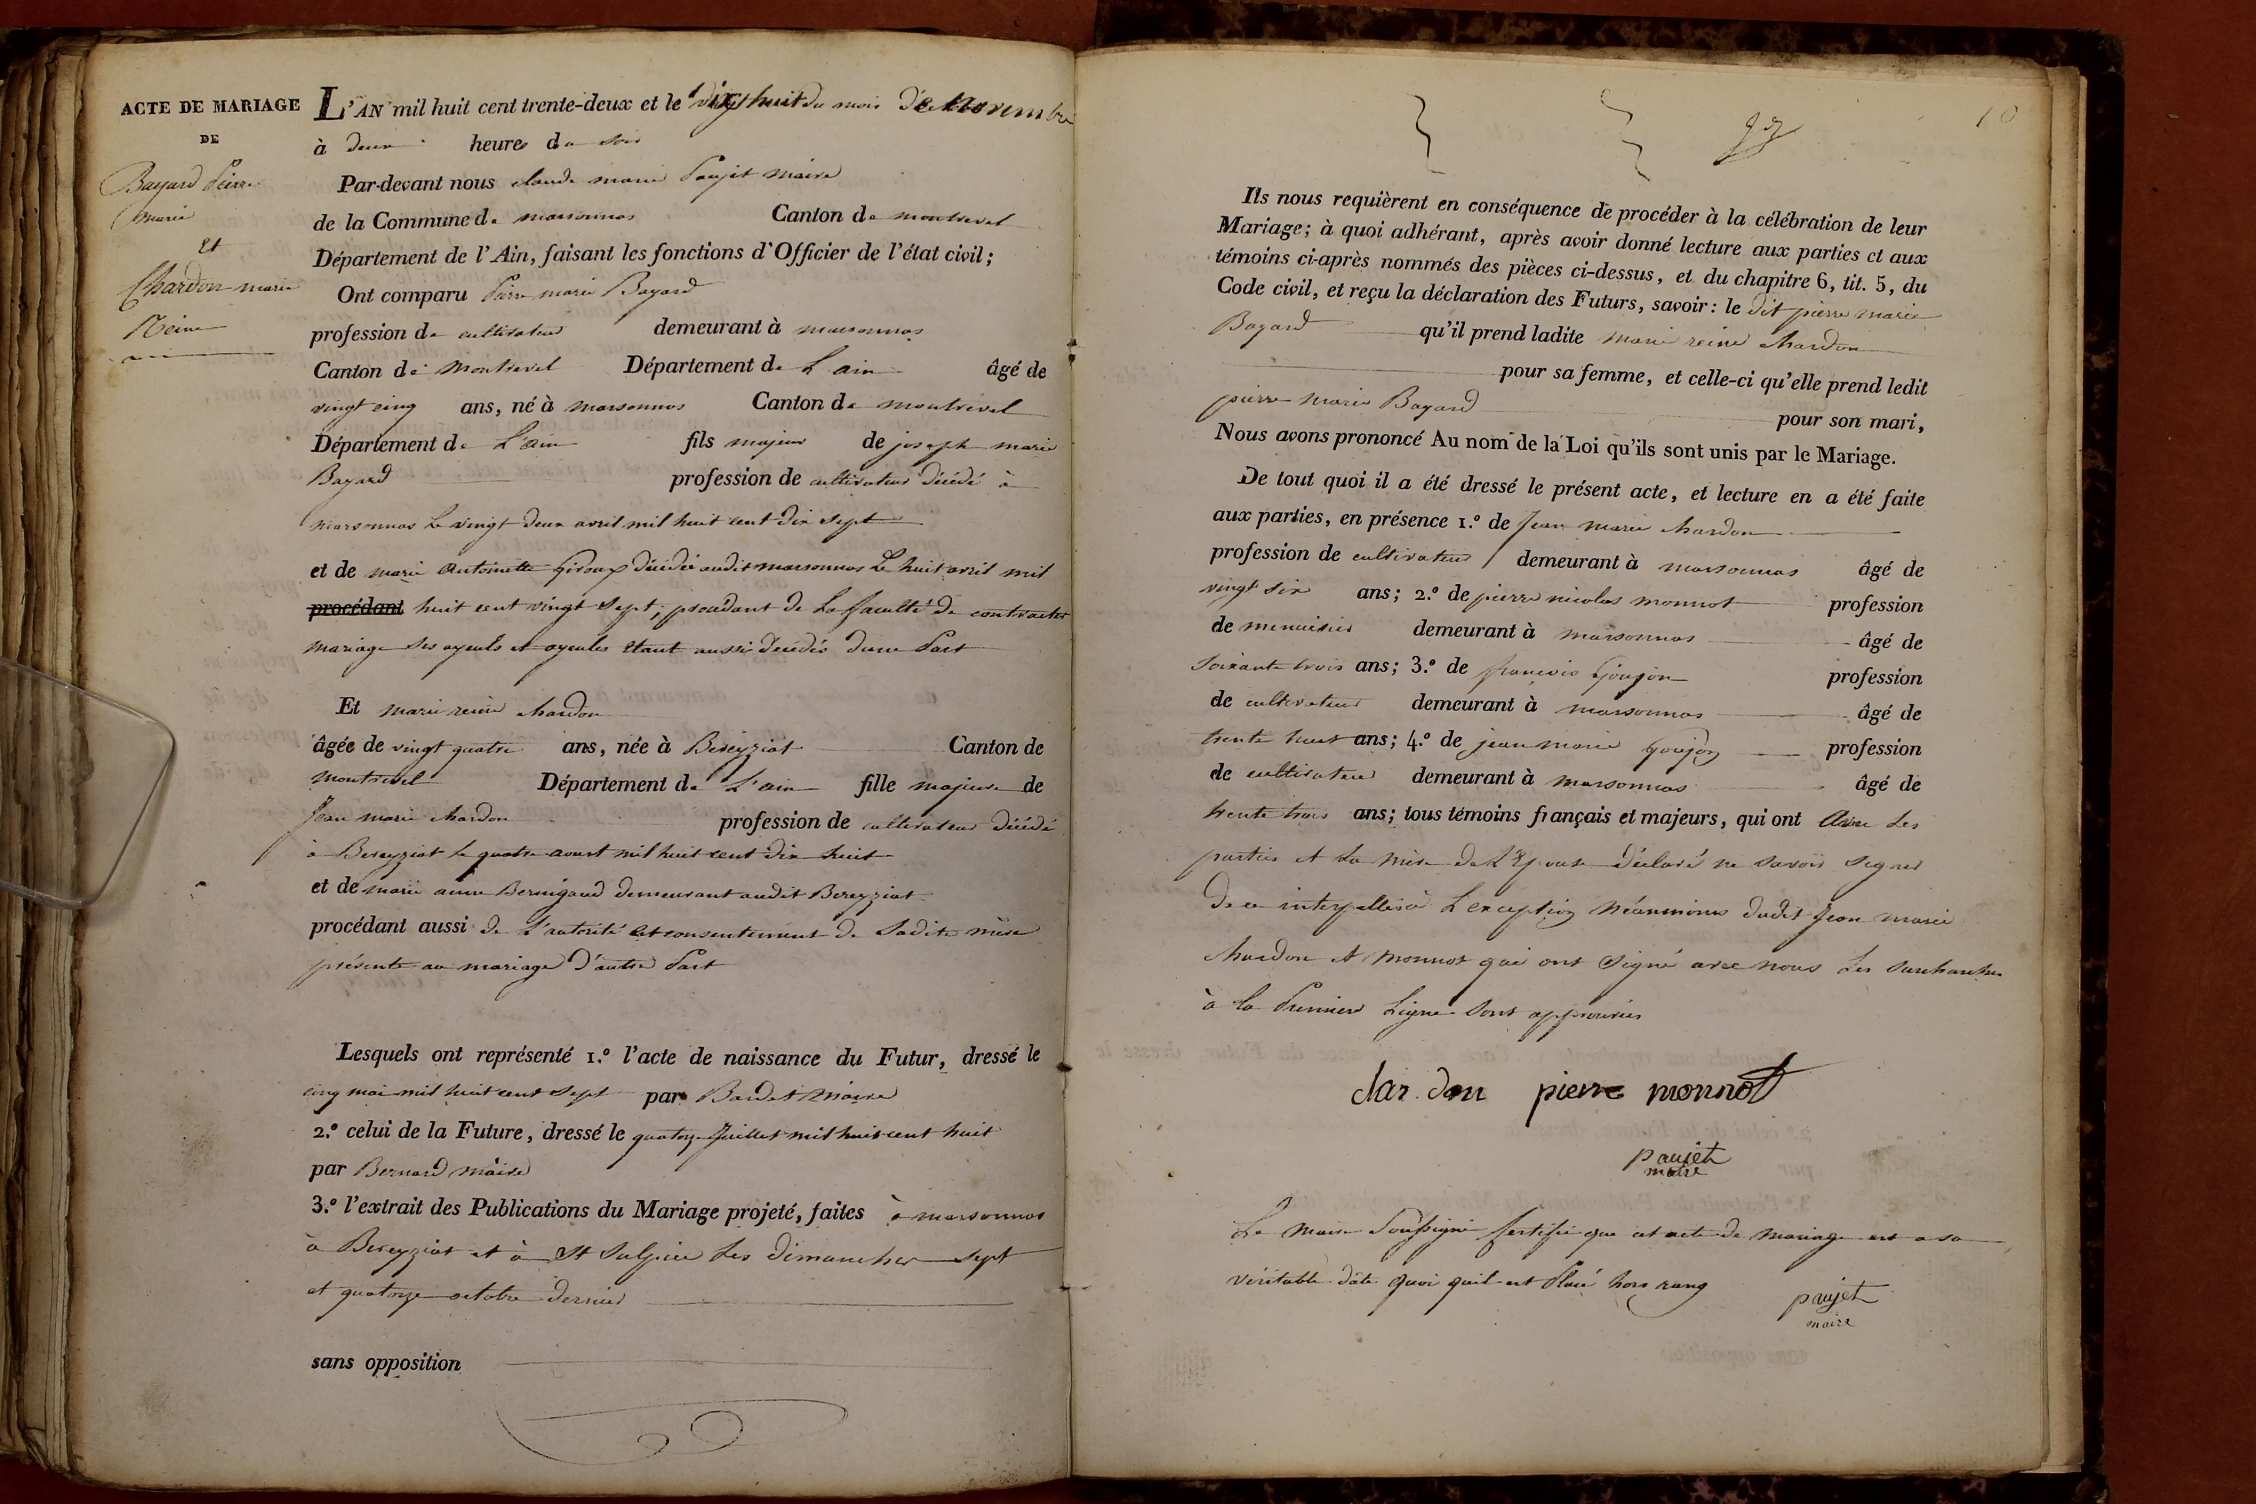 ACTE DE MARIAGE
DE
Bayard Pierre
marie
et
Chardon marie
Reine
L'AN mil huit cent trente-deux et le dix huit du mois de Novembre
à deux heures du soir
Par-devant nous claude marie Paujet Maire
de la Commune de marsonnas Canton de montrevel
Département de l'Ain, faisant les fonctions d'Officier de l'état civil;
Ont comparu Pierre marie Bayard
profession de cultivateur demeurant à marsonnas
Canton de Montrevel Département de L'ain âgé de
vingt cinq ans, né à marsonnas Canton de montrevel
Département de L'ain fils majeur de joseph marie
Bayard profession de cultivateur décédé à
marsonnas Le vingt deux avril mil huit cent dix sept
et de marie Antoinette Giroux décédée audit marsonnas Le huit avril mil
procédant huit cent vingt sept, procédant de La faculté de contracter
mariage ses ayeuls et ayeules étant aussi décédés d'une Part
Et marie reine chardon
âgée de vingt quatre ans, née à Bereyziat Canton de
montrevel Département de L'ain fille majeure de
Jean marie chardon profession de cultivateur décédé
à Bereyziat le quatre aoust mil huit cent dix huit
et de marie anne Bernigaud demeurant audit Bereyziat
procédant aussi de L'autorité et consentement de Sadite mère
présente au mariage d'autre Part
Lesquels ont représenté 1.º l'acte de naissance du Futur, dressé le
cinq mai mil huit cent sept par Bardet Maire
2.º celui de la Future, dressé le quatorze Juillet mil huit cent huit
par Bernard maire
3.º l'extrait des Publications du Mariage projeté, faites à marsonnas
à Bereyziat et à St Sulpice Les dimanches sept
et quatorze octobre dernier
sans opposition
10
Ils nous requièrent en conséquence de procéder à la célébration de leur
Mariage; à quoi adhérant, après avoir donné lecture aux parties et aux
témoins ci-après nommés des pièces ci-dessus, et du chapitre 6, tit. 5, du
Code civil, et reçu la déclaration des Futurs, savoir: le dit pierre marie
Bayard qu'il prend ladite marie reine chardon
pour sa femme, et celle-ci qu'elle prend ledit
pierre marie Bayard pour son mari,
Nous avons prononcé Au nom de la Loi qu'ils sont unis par le Mariage.
De tout quoi il a été dressé le présent acte, et lecture en a été faite
aux parties, en présence 1.º de Jean marie chardon
profession de cultivateur demeurant à marsonnas âgé de
vingt six ans; 2.º de pierre nicolas monnot profession
de menuisier demeurant à marsonnas âgé de
soixante trois ans; 3.º de françois Goujon profession
de cultivateur demeurant à marsonnas âgé de
trente huit ans; 4.º de jean marie Goujon profession
de cultivateur demeurant à marsonnas âgé de
trente trois ans; tous témoins français et majeurs, qui ont avec Les
parties et La mère de L'Epouse déclaré ne savoir signer
de ce interpellés à L'exception Néanmoins dudit Jean marie
chardon et monnot qui ont signé avec nous Les surcharches
à la Premiere Ligne sont approuvées
char don pierre monnot
paujet
maire
Le Maire Soussigné Certifie que cet acte de mariage est a sa
véritable date quoi quil est Placé hors rang
paujet
maire